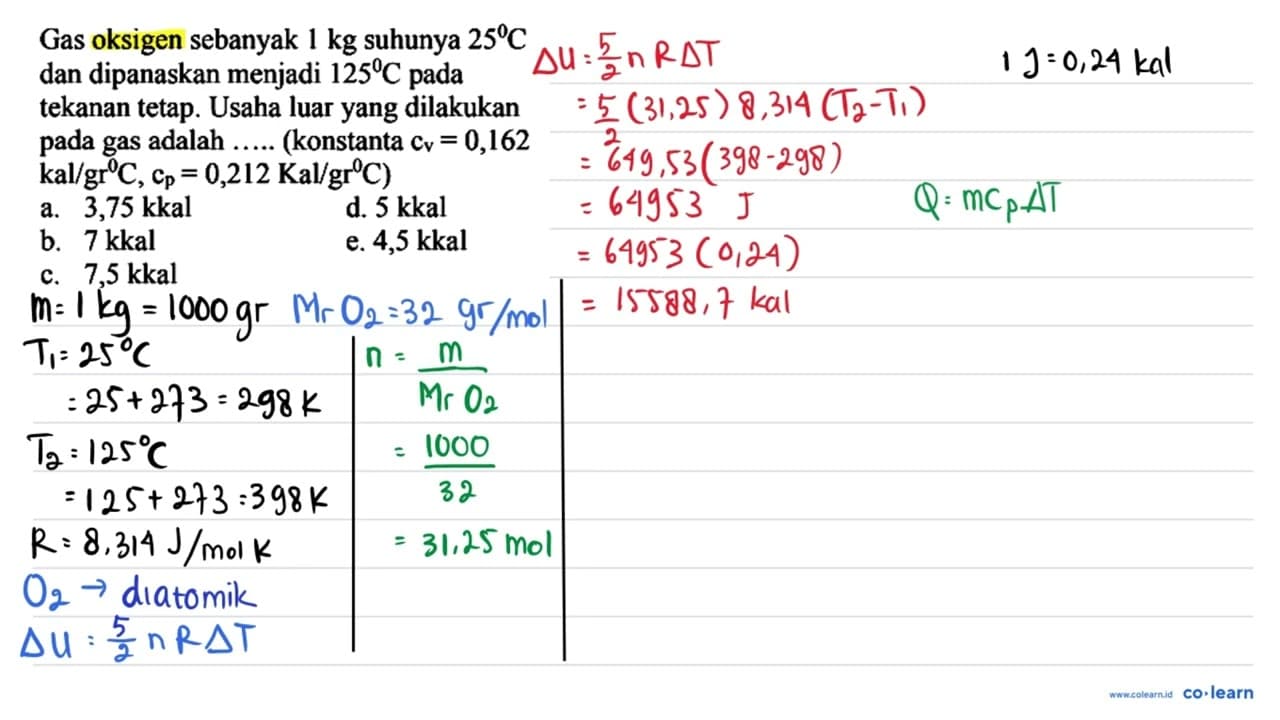 Gas oksigen sebanyak 1 kg suhunya 25⁰C
dan dipanaskan menjadi 125⁰C pada
tekanan tetap. Usaha luar yang dilakukan
pada gas adalah ..... (konstanta cᵥ = 0,162
kal/gr⁰C, cₚ = 0,212 Kal/gr⁰C)
a. 3,75 kkal d. 5 kkal
b. 7 kkal e. 4,5 kkal
c. 7,5 kkal
m = 1 kg = 1000 gr Mr O₂ = 32 gr/mol
T₁ = 25°C
= 25 + 273 = 298 K
T₂ = 125°C
= 125 + 273 = 398 K
R = 8,314 J/mol K
O₂ → diatomik
ΔU = 5/2 n R ΔT
n = m / Mr O₂
= 1000 / 32
= 31,25 mol
ΔU = 5/2 n R ΔT
= 5/2 (31,25) 8,314 (T₂ - T₁)
= 649,53 (398 - 298)
= 64953 J
= 64953 (0,24)
= 15588,7 kal
1 J = 0,24 kal
Q = m Cₚ ΔT
www.colearn.id co·learn